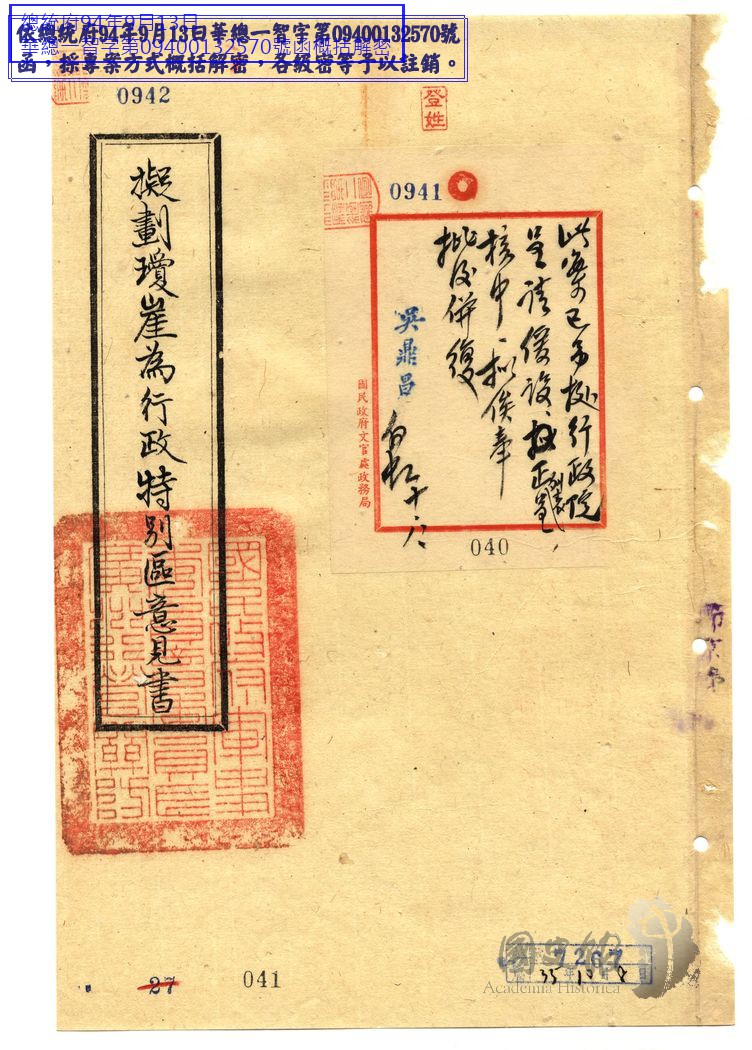 總統府94年9月13日
華總一智字第09400132570號函概括解密
依總統府94年9月13日華總一智字第09400132570號
函,採專案方式概括解密,各級密等予以註銷。
0942
登姓
0941
此案已另據行政院
呈請緩設、
核中、擬俟奉
批後併復
吳鼎昌
國民政府文官處政務局
040
擬劃瓊崖為行政特別區意見書
國史館
Academia Historica
7267
35 10 8
27
041